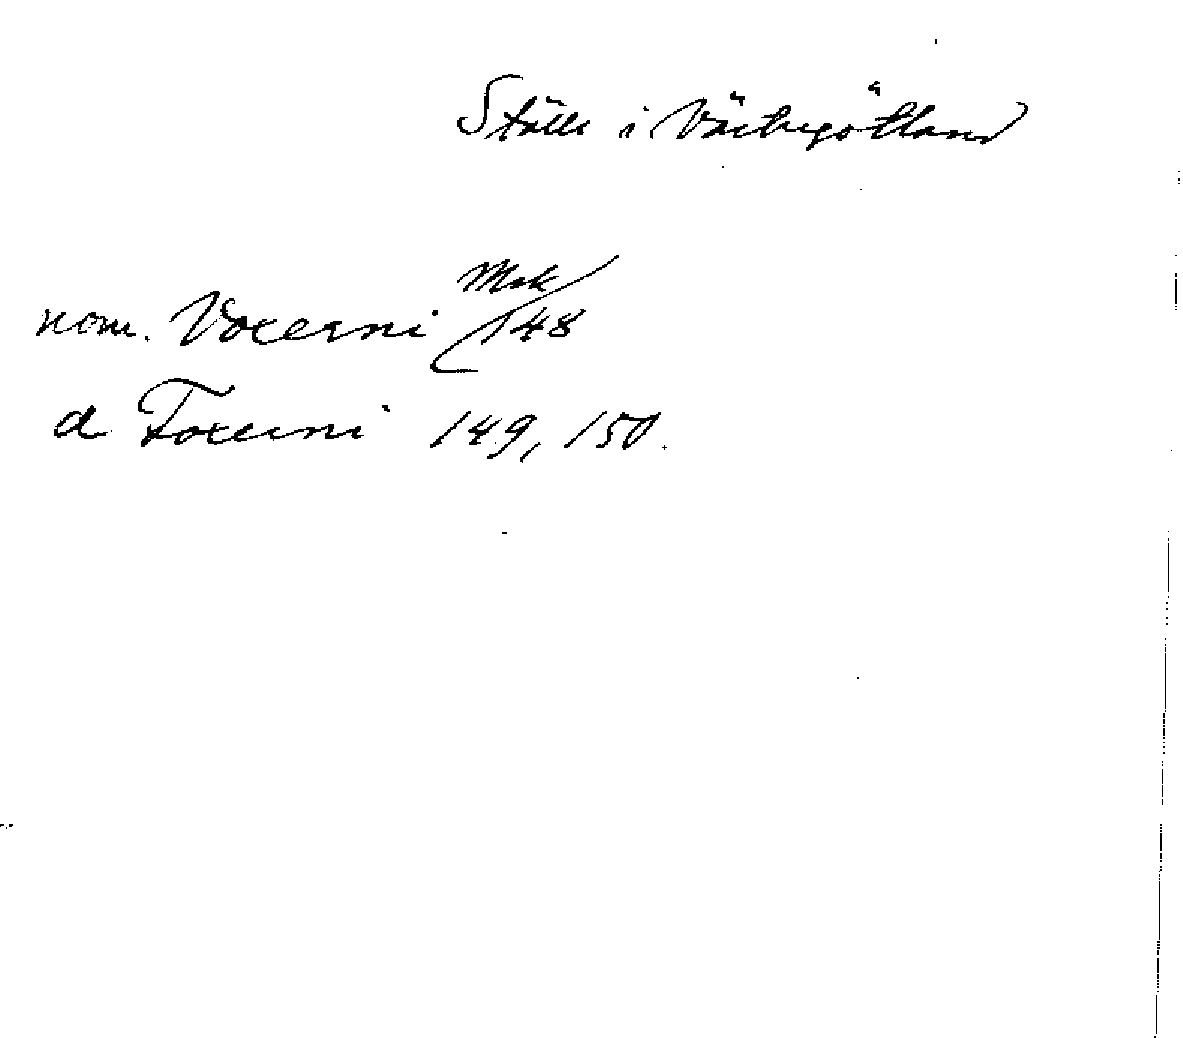 Ställe i Västergötland
nom. Voxerni Msk/148
d Foxerni 149, 150.